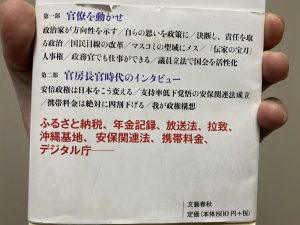 第一部 官僚を動かせ
政治家が方向性を示す/自らの思いを政策に/決断し、責任を取
る政治/国民目線の改革/マスコミの聖域にメス/「伝家の宝刀」
人事権/政務官でも仕事ができる/議員立法で国会を活性化
第二部 官房長官時代のインタビュー
安倍政権は日本をこう変える/支持率低下覚悟の安保関連法成立
/携帯料金は絶対に四割下げる/我が政権構想
ふるさと納税、年金記録、放送法、拉致、
沖縄基地、安保関連法、携帯料金、
デジタル庁――
文藝春秋
定価(本体800円+税)